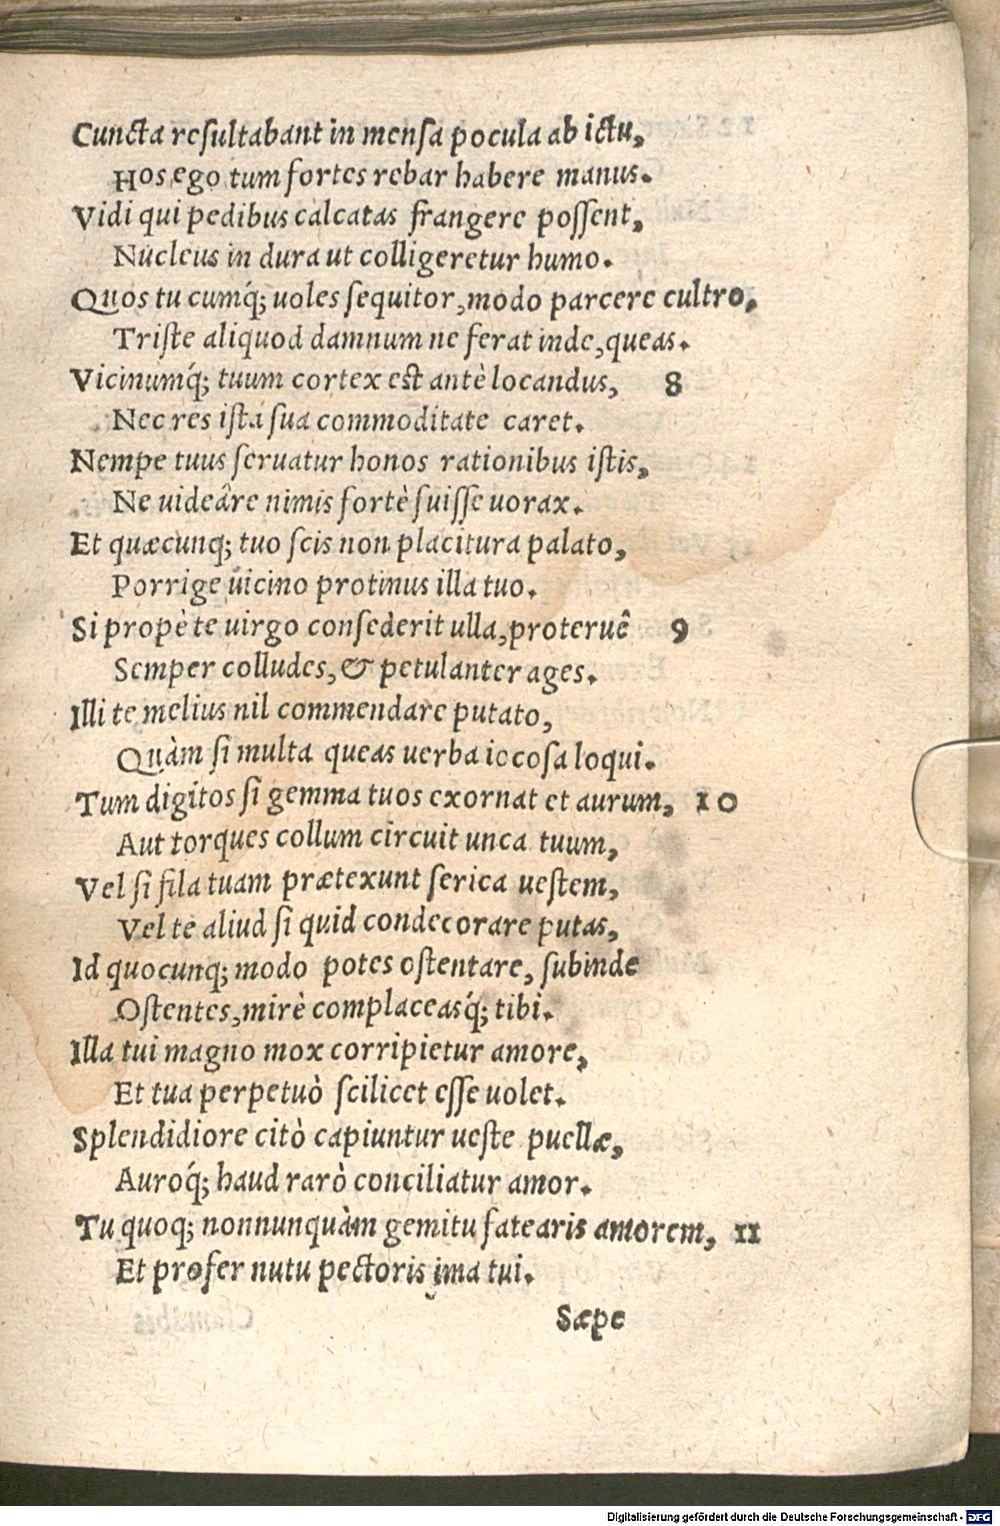 Cuncta resultabant in mensa pocula ab ictu,
Hos ego tum fortes rebar habere manus.
Vidi qui pedibus calcatas frangere possent,
Nucleus in dura ut colligeretur humo.
Quos tu cumq́; uoles sequitor, modo parcere cultro,
Triste aliquod damnum ne ferat inde, queas.
Vicinumq́; tuum cortex est antè locandus, 8
Nec res ista sua commoditate caret.
Nempe tuus seruatur honos rationibus istis,
Ne uideâre nimis fortè fuisse uorax.
Et quæcunq; tuo scis non placitura palato,
Porrige uicino protinus illa tuo.
Si propè te uirgo consederit ulla, proteruê 9
Semper colludes, & petulanter ages.
Illi te melius nil commendare putato,
Quàm si multa queas uerba iocosa loqui.
Tum digitos si gemma tuos exornat et aurum, 10
Aut torques collum circuit unca tuum,
Vel si fila tuam prætexunt serica uestem,
Vel te aliud si quid condecorare putas,
Id quocunq; modo potes ostentare, subinde
Ostentes, mirè complaceasq́; tibi.
Illa tui magno mox corripietur amore,
Et tua perpetuò scilicet esse uolet.
Splendidiore citò capiuntur ueste puellæ,
Auroq́; haud rarò conciliatur amor.
Tu quoq; nonnunquàm gemitu fatearis amorem, 11
Et profer nutu pectoris ima tui.
Sæpe
Digitalisierung gefördert durch die Deutsche Forschungsgemeinschaft - DFG